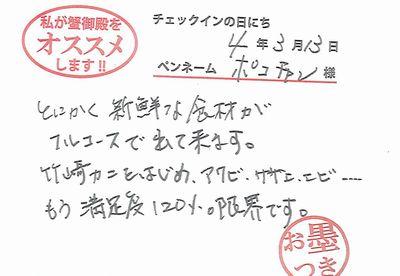 私が蟹御殿を
オススメ
します!!
チェックインの日にち
4年3月13日
ペンネーム ポコチャン 様
とにかく 新鮮な食材が
フルコースで出て来ます。
竹崎カニをはじめ、アワビ、サザエ、エビ----
もう満足度120%。限界です。
お墨
つき